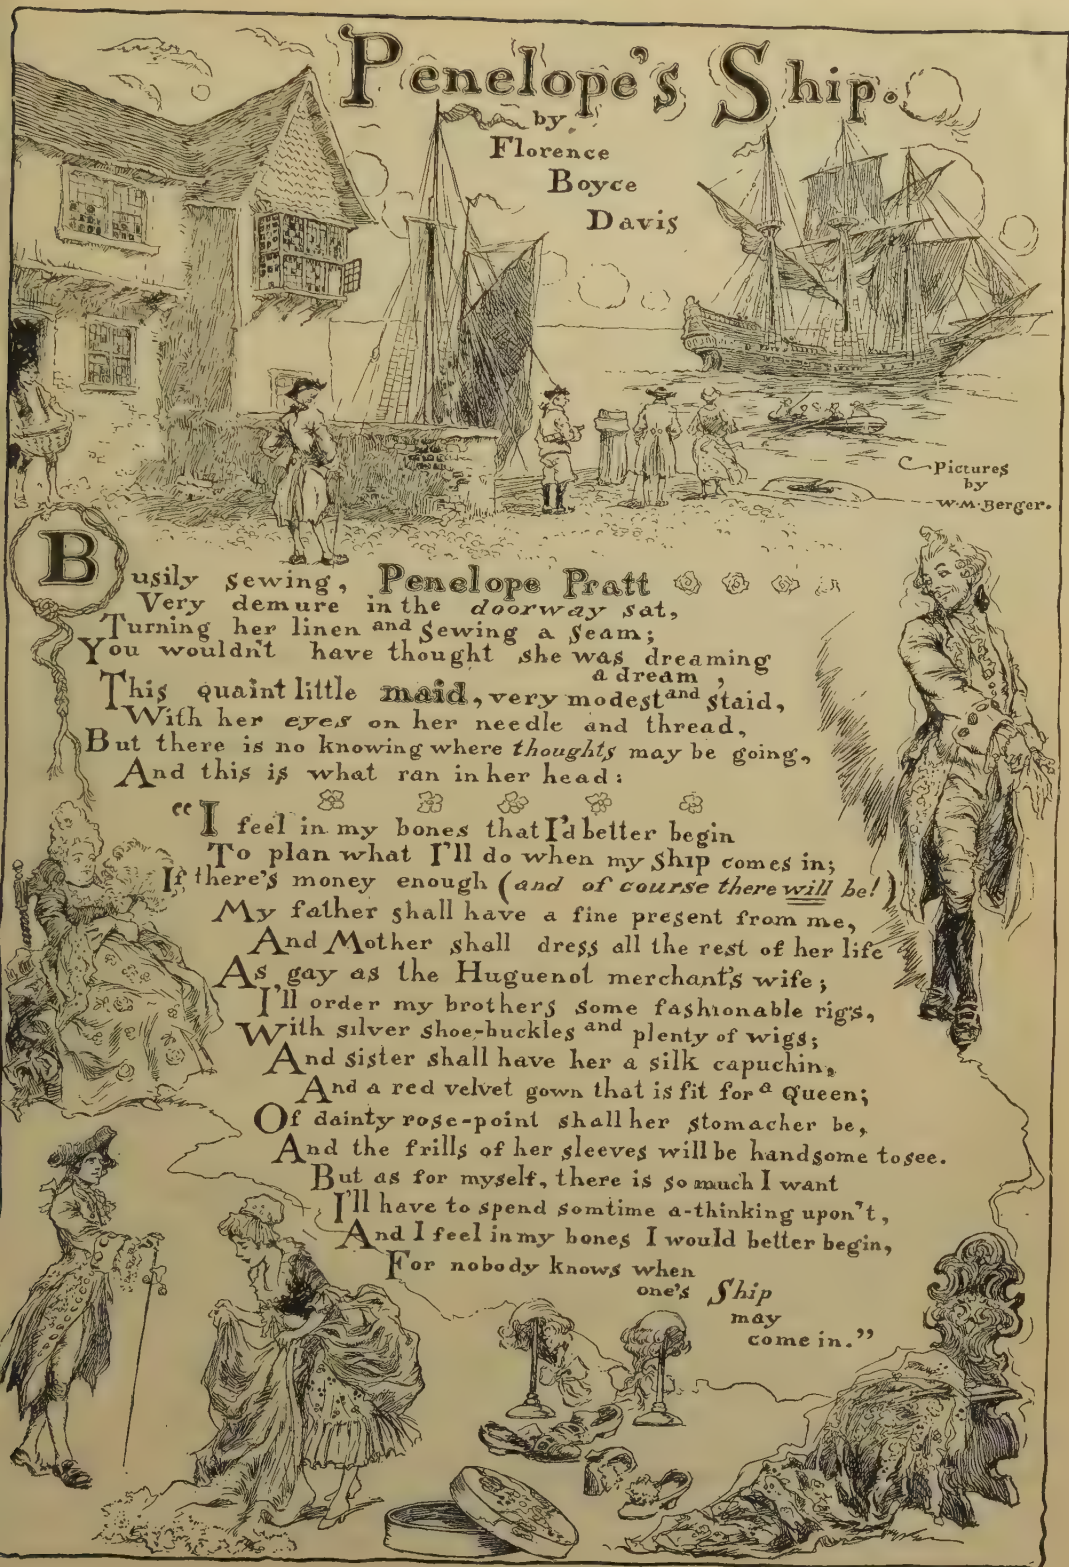 Penelope's Ship.
by
Florence
Boyce
Davis
Pictures
by
W·M·Berger.
Busily sewing, Penelope Pratt
Very demure in the doorway sat,
Turning her linen and sewing a seam;
You wouldn't have thought she was dreaming
a dream,
This quaint little maid, very modest and staid,
With her eyes on her needle and thread,
But there is no knowing where thoughts may be going,
And this is what ran in her head:
"I feel in my bones that I'd better begin
To plan what I'll do when my ship comes in;
If there's money enough (and of course there will be!)
My father shall have a fine present from me,
And Mother shall dress all the rest of her life
As gay as the Huguenot merchant's wife;
I'll order my brothers some fashionable rigs,
With silver shoe-buckles and plenty of wigs;
And sister shall have her a silk capuchin,
And a red velvet gown that is fit for a Queen;
Of dainty rose-point shall her stomacher be,
And the frills of her sleeves will be handsome to see.
But as for myself, there is so much I want
I'll have to spend somtime a-thinking upon't,
And I feel in my bones I would better begin,
For nobody knows when
one's Ship
may
come in."